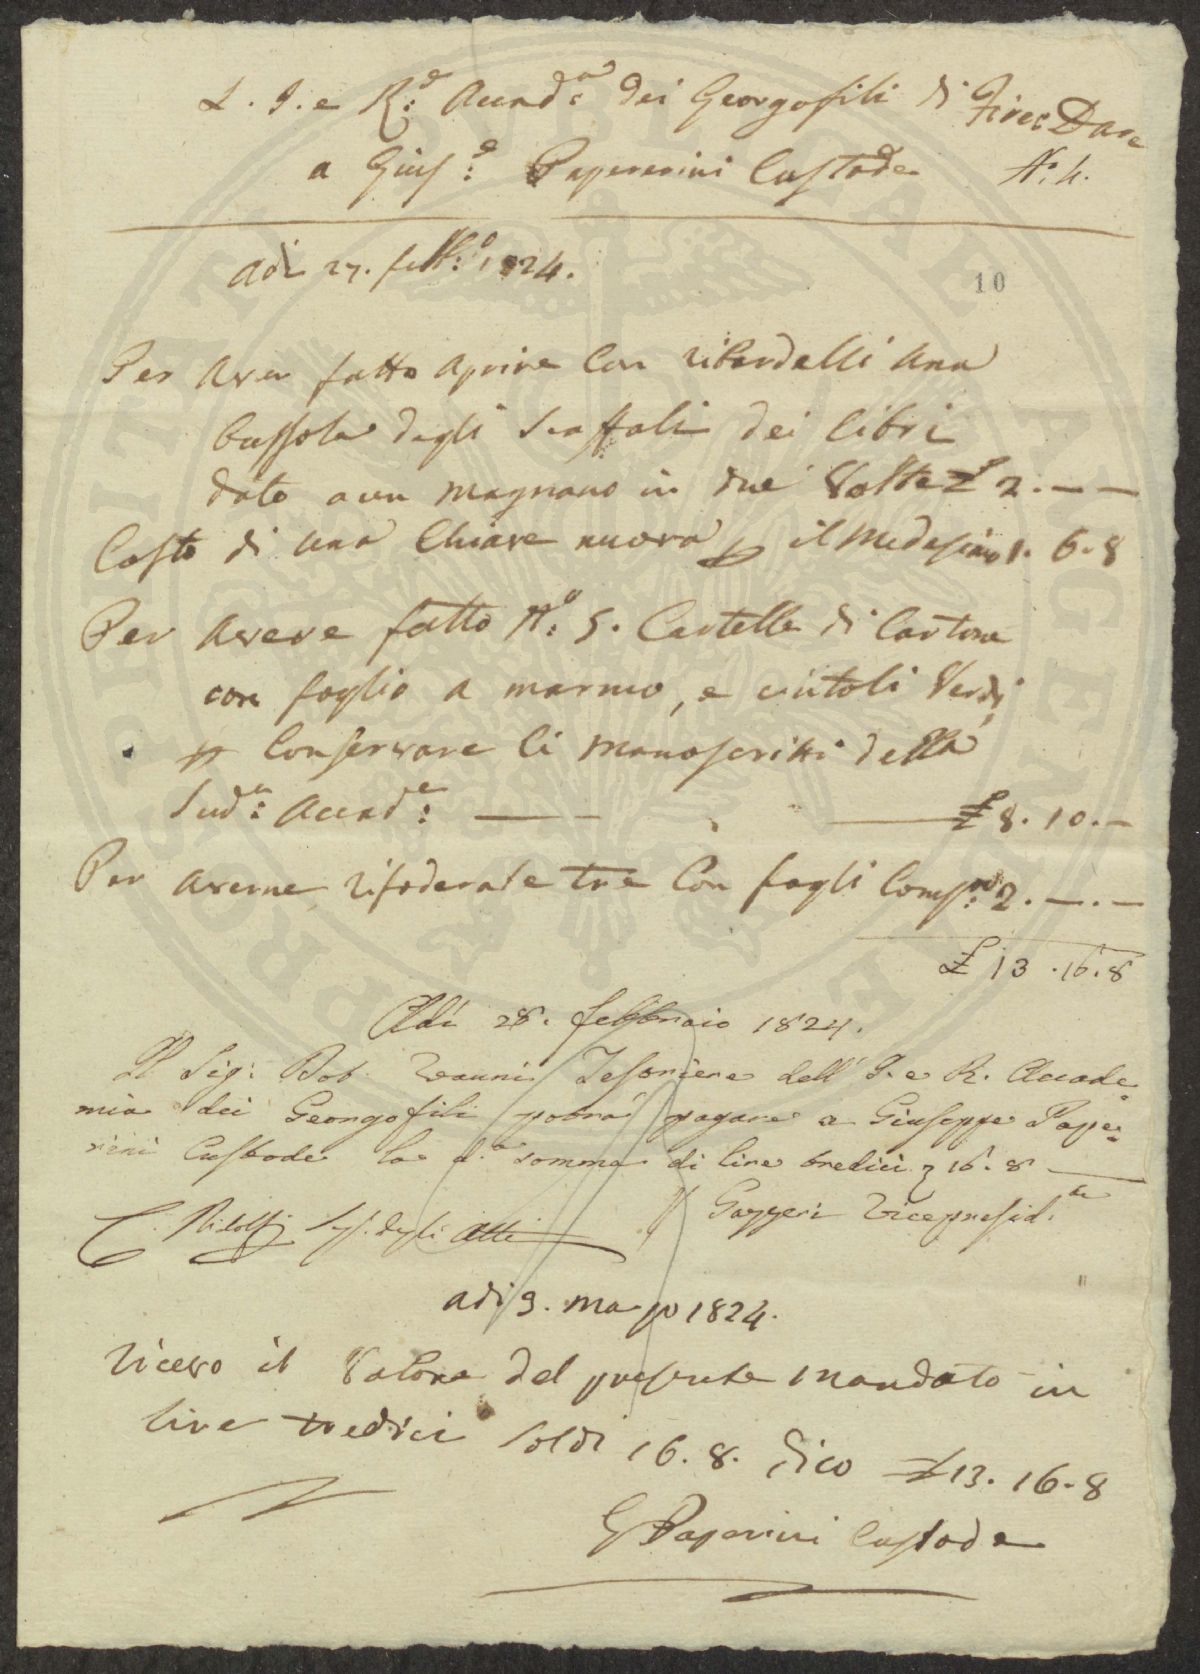 L. I. e R.e Accad.a dei Georgofili di Firec Dare
a Gius.e Papererini Custode N.o 4.
adi 27. febb.o 1824.
10
Per aver fatto aprire con ribordelli una
bussola degli scaffali dei libri
dato a un magnano in due volte £ 2. — —
Costo di una Chiave nuova p il Medesimo 1. 6. 8
Per avere fatto N.o 5. Cartelle di Cartone
con foglio a marmo, e cintoli Verdi
p Conservare li manoscritti della
Sud.a Accad.a — — £ 8. 10. —
Per averne rifoderate tre Con fogli Comp.ni 2. —. —
£ 13. 16. 8
Adi 28. febbraio 1824.
Il Sig: Dot. Vanni Tesoriere dell' I. e R. Accade
mia dei Georgofili potrà pagare a Giuseppe Pape=
rini Custode la d.a somma di lire tredici 16. 8 —
C. Ridolfi Seg. degli Atti
Gazzeri Vicepresid.te
adi 9. marzo 1824.
Ricevo il Valore del presente mandato in
lire tredici soldi 16. 8. Dico £ 13. 16. 8
G Paperini Custode